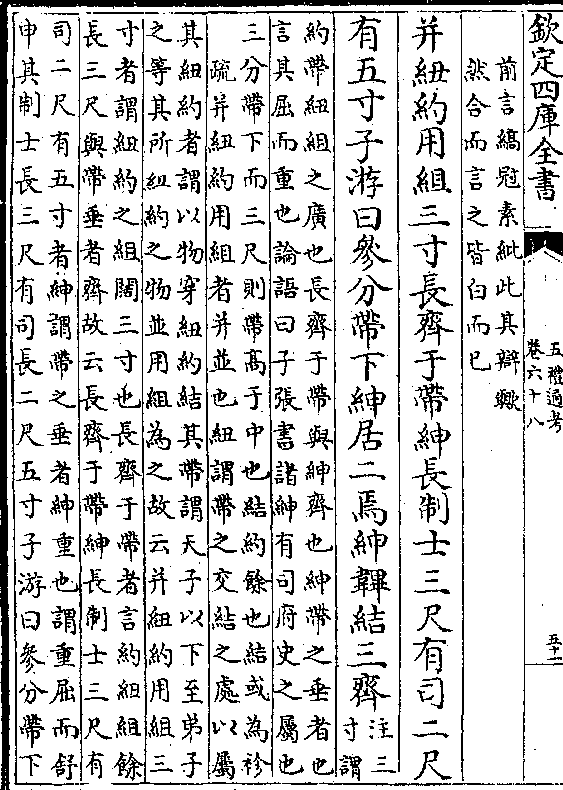 欽定四庫全書
五禮通考
卷六十八
五十一
前言縞冠素紕此其辯歟
然合而言之皆白而已
并紐約用組三寸長齊于帶紳長制士三尺有司二尺
有五寸子游曰參分帶下紳居二焉紳韠結三齊
注三
寸謂
約帶紐組之廣也長齊于帶與紳齊也紳帶之垂者也
言其屈而重也論語曰子張書諸紳有司府史之屬也
三分帶下而三尺則帶髙于中也結約餘也結或為衿
疏并紐約用組者并並也紐謂帶之交結之處以屬
其紐約者謂以物穿紐約結其帶謂天子以下至弟子
之等其所紐約之物並用組為之故云并紐約用組三
寸者謂紐約之組闊三寸也長齊于帶者言約紐組餘
長三尺與帶垂者齊故云長齊于帶紳長制士三尺有
司二尺有五寸者紳謂帶之垂者紳重也謂重屈而舒
申其制士長三尺有司長二尺五寸子游曰參分帶下